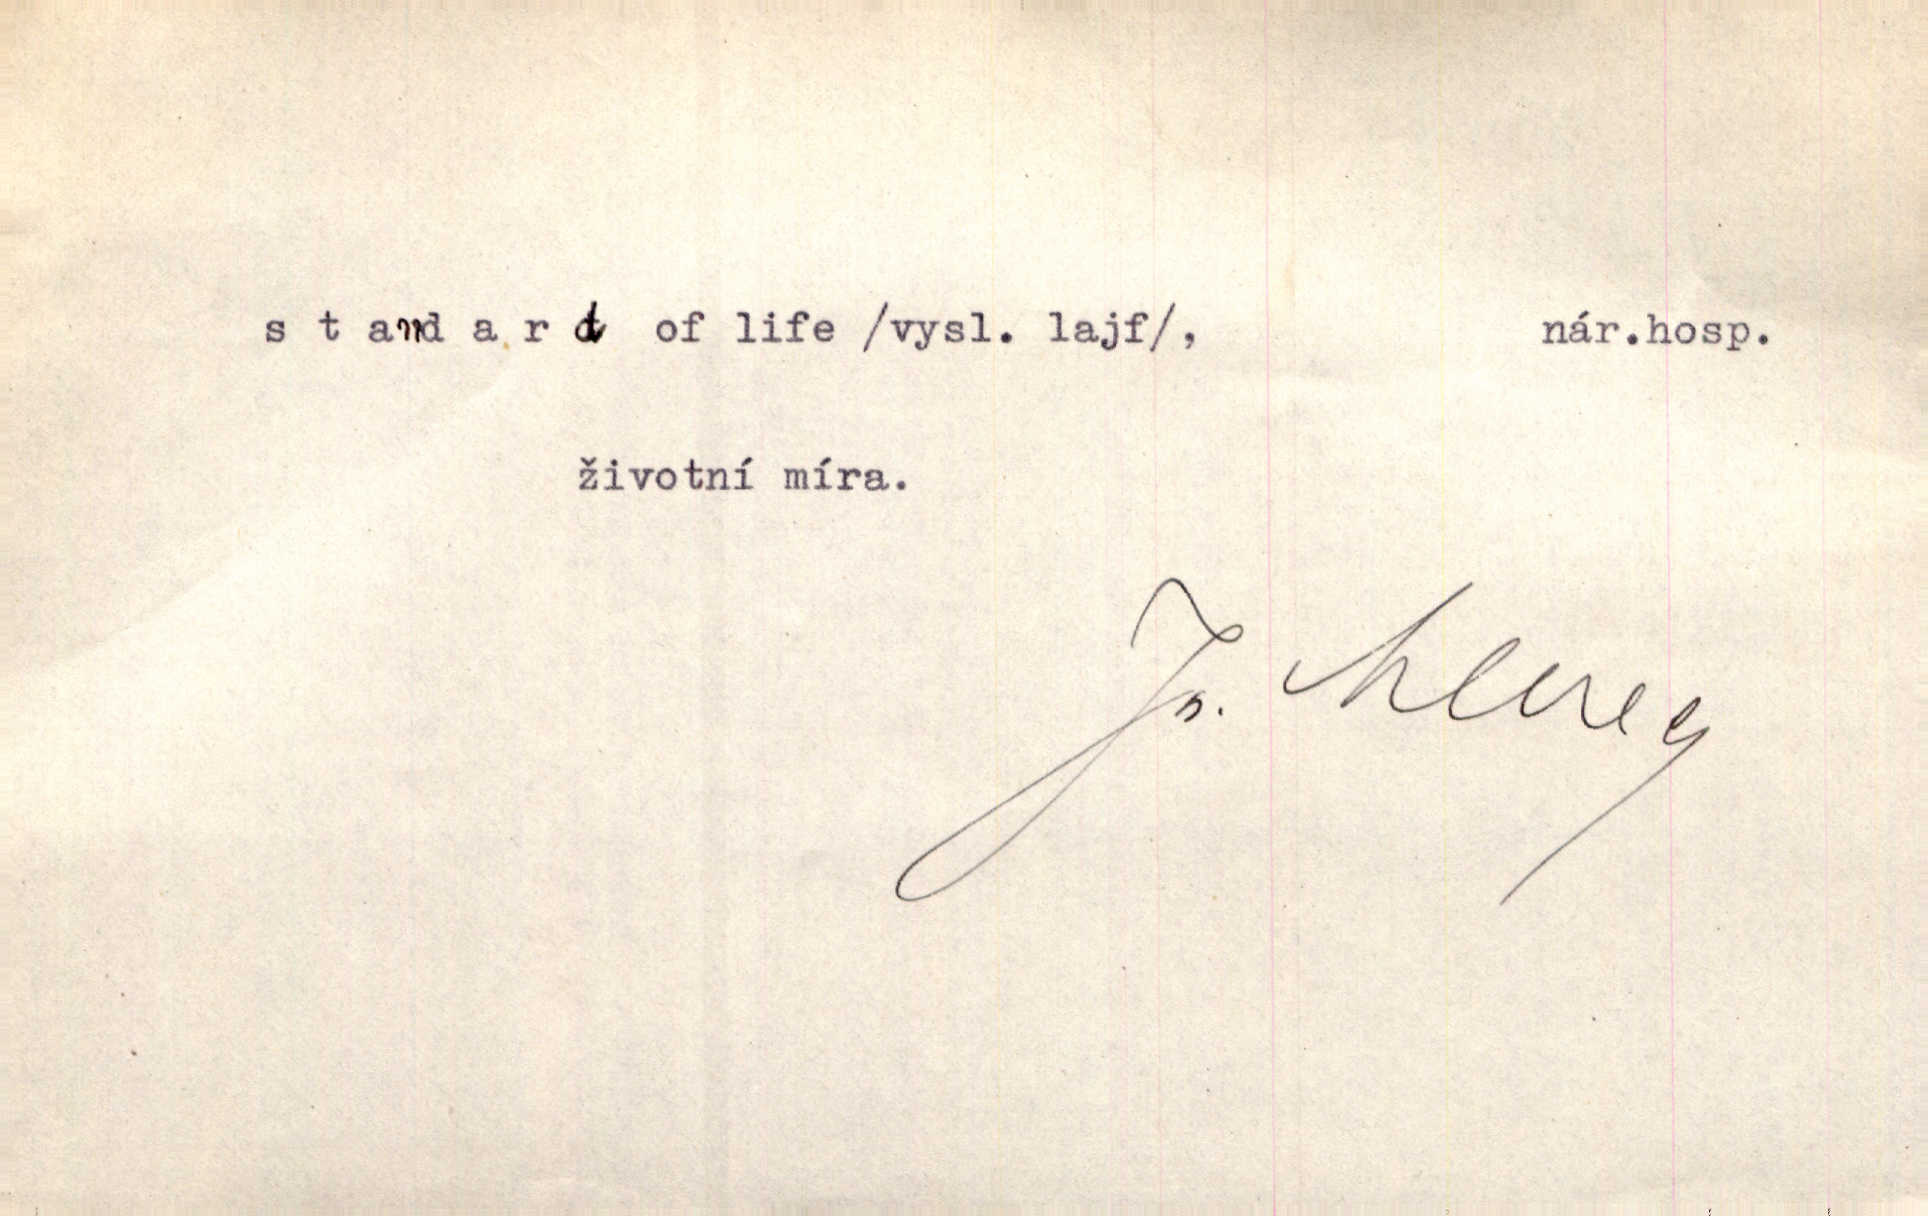 s t a n d a r d of life /vysl. lajf/, nár.hosp.
životní míra.